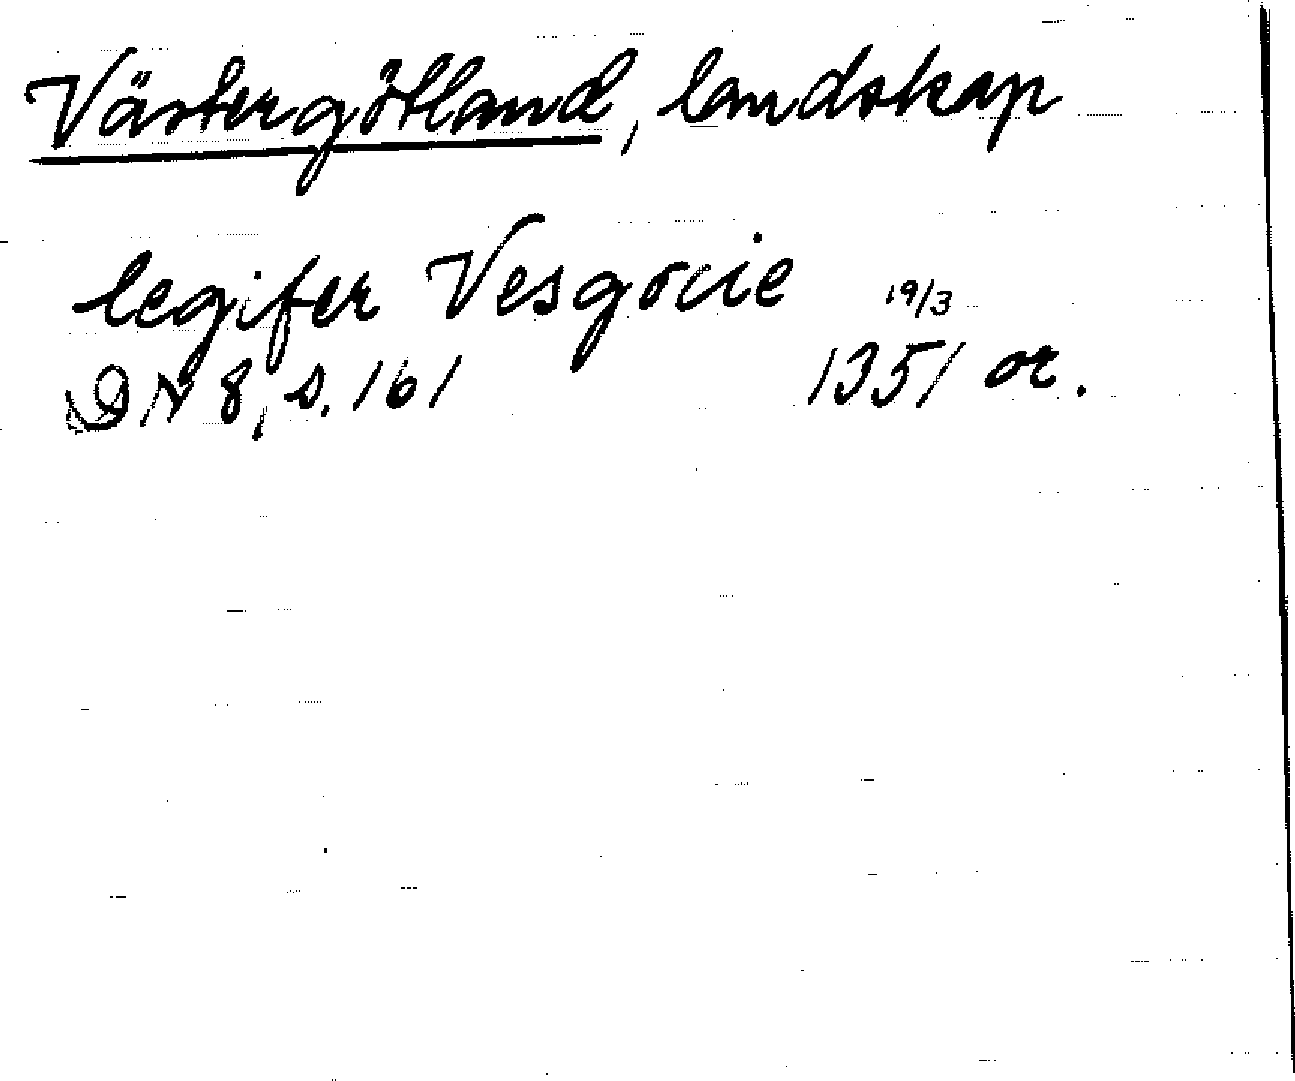 Västergötland, landskap
legifer Vesgocie 19/3
DN 8, s. 161 1351 or.